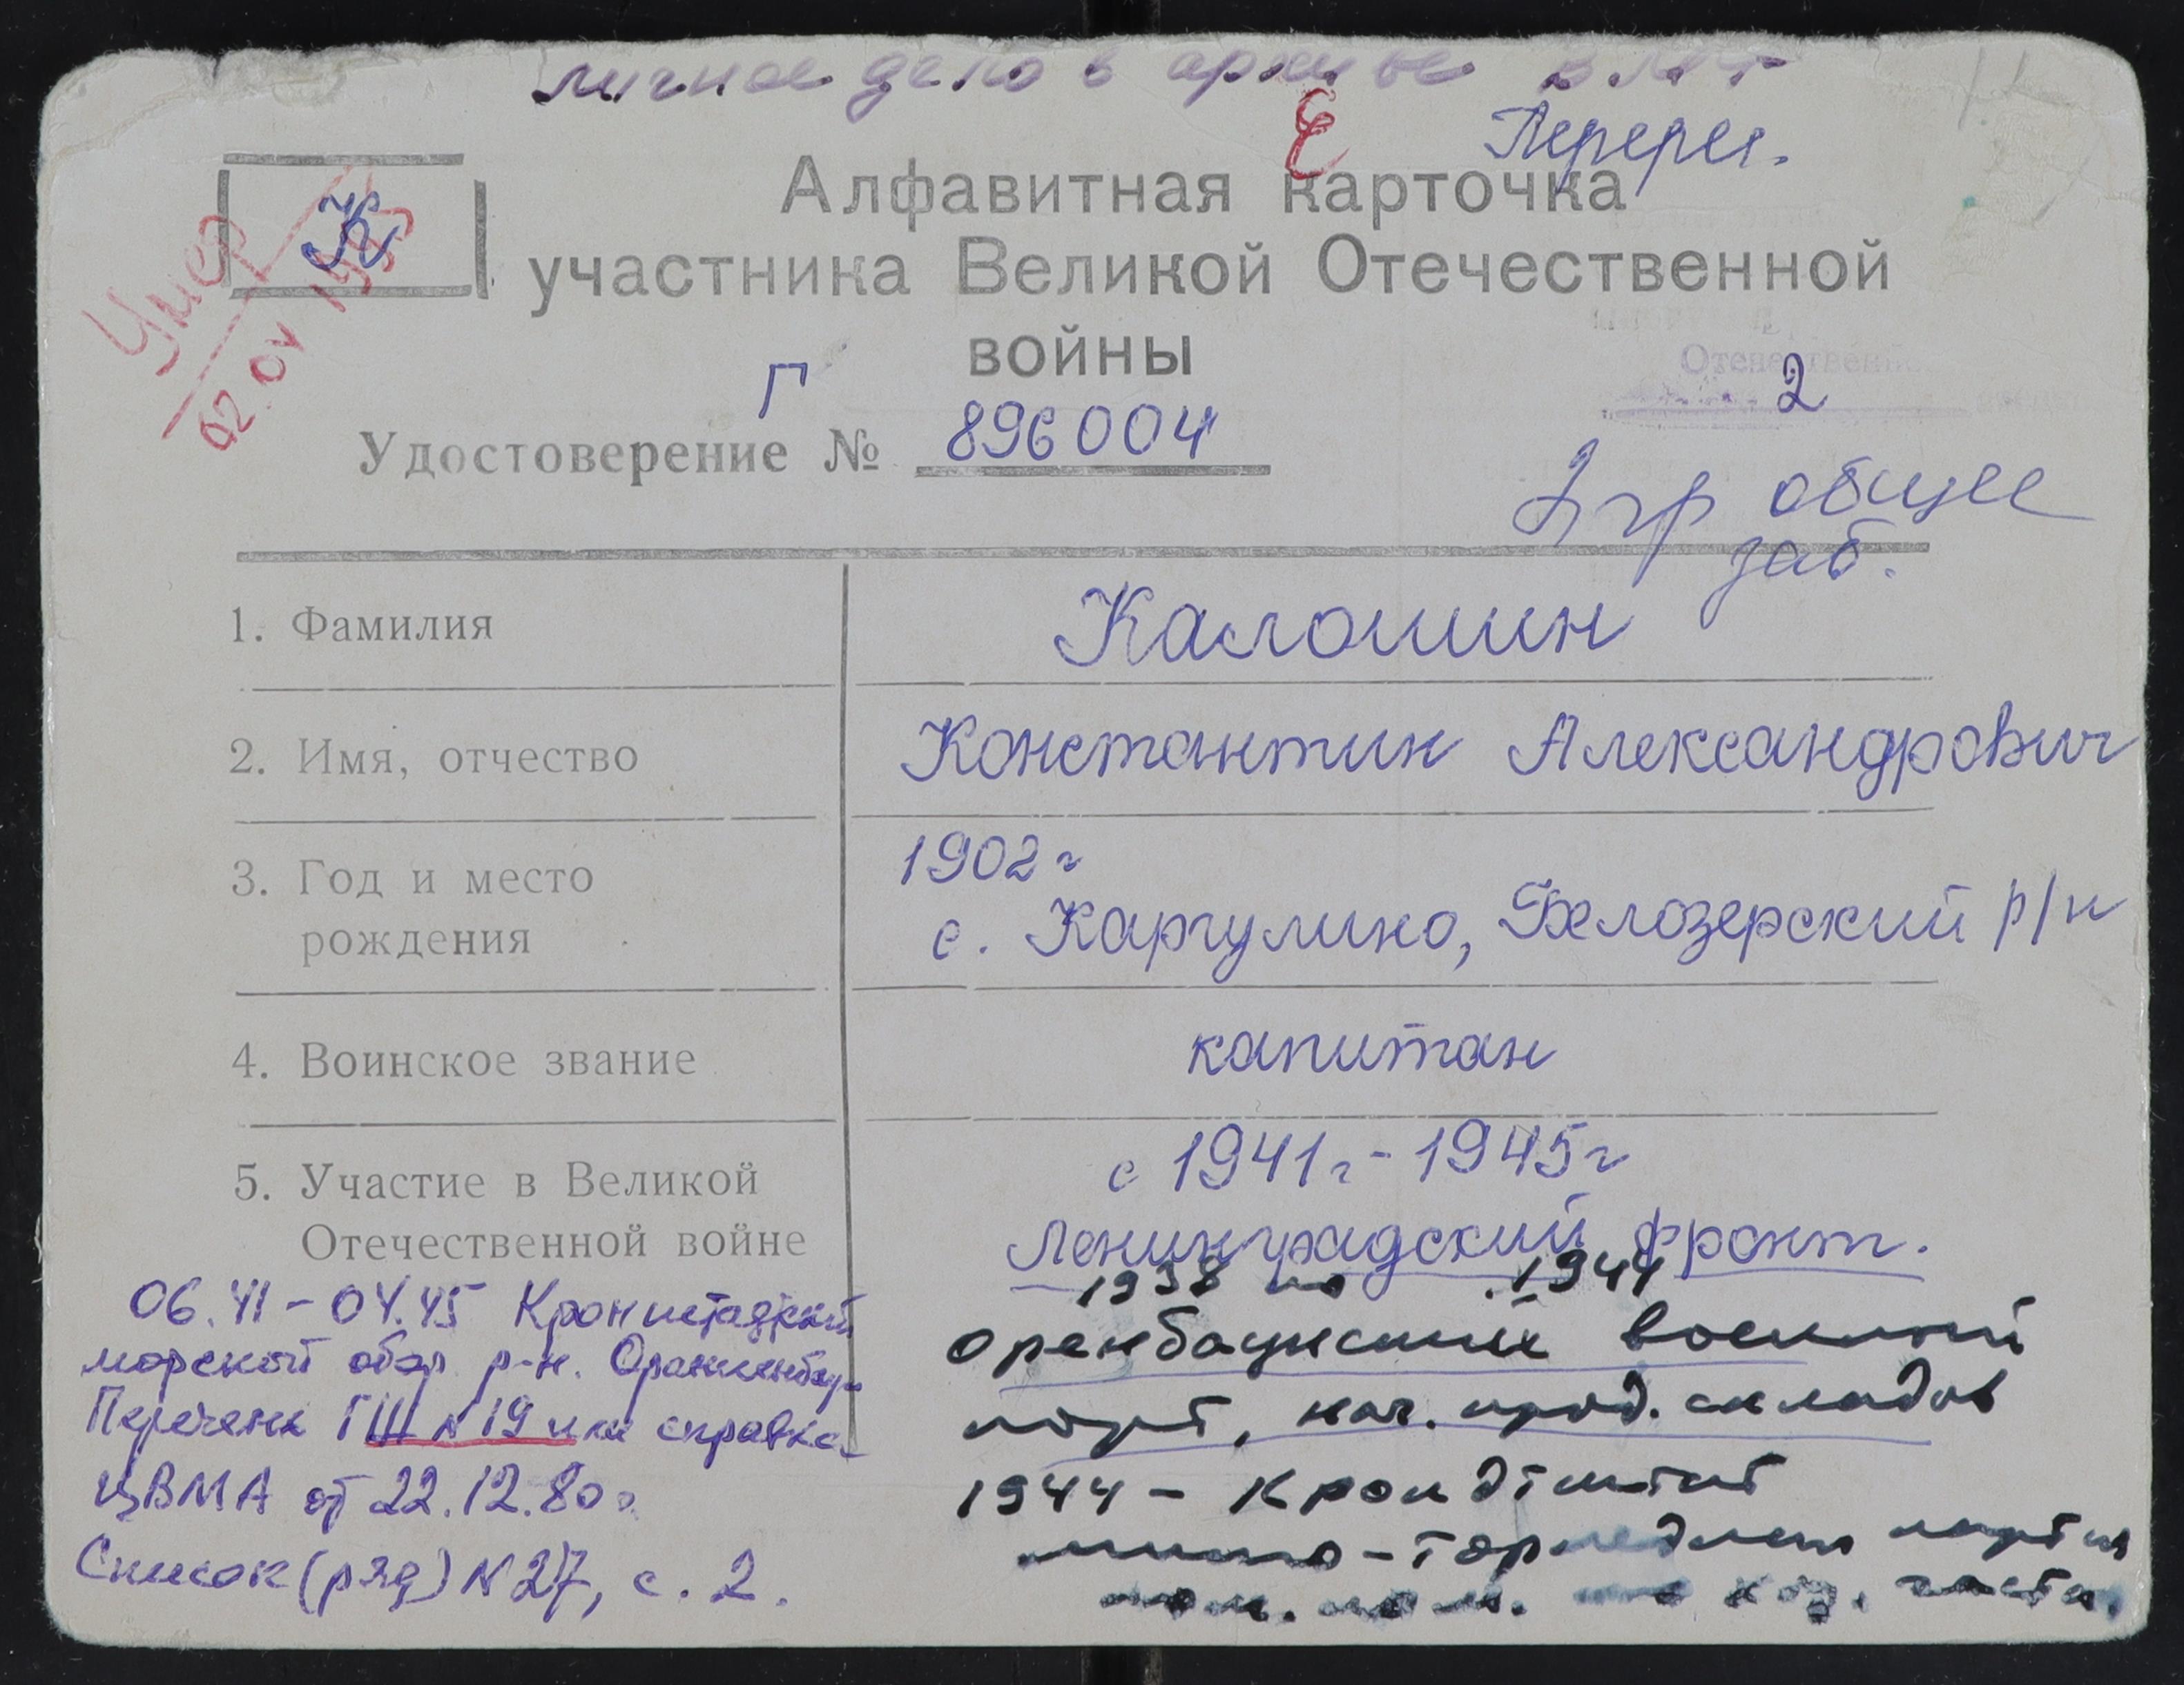 личное дело в архиве ВМФ
Перерег.
Алфавитная карточка
участника Великой Отечественной
войны
Умер
02.04.1983
Г
2
Удостоверение № 896004
2 гр общее
заб.
1. Фамилия Калошин
2. Имя, отчество Константин Александрович
3. Год и место
рождения
1902 г
с. Каргулино, Белозерский р/н
4. Воинское звание капитан
5. Участие в Великой
Отечественной войне
с 1941г - 1945г
Ленинградский фронт.
1938 по 1944
военный
порт, нач. прод. складов
1944 - Крондштат
мино-торпедной
пом. ком. по хоз. части.
06.41 - 04.45 Кронштадский
морской обор. р-н.
Перечень ГШ N 19 или справка
ЦВМА от 22.12.80г.
Список (ряд) N 27, с. 2.